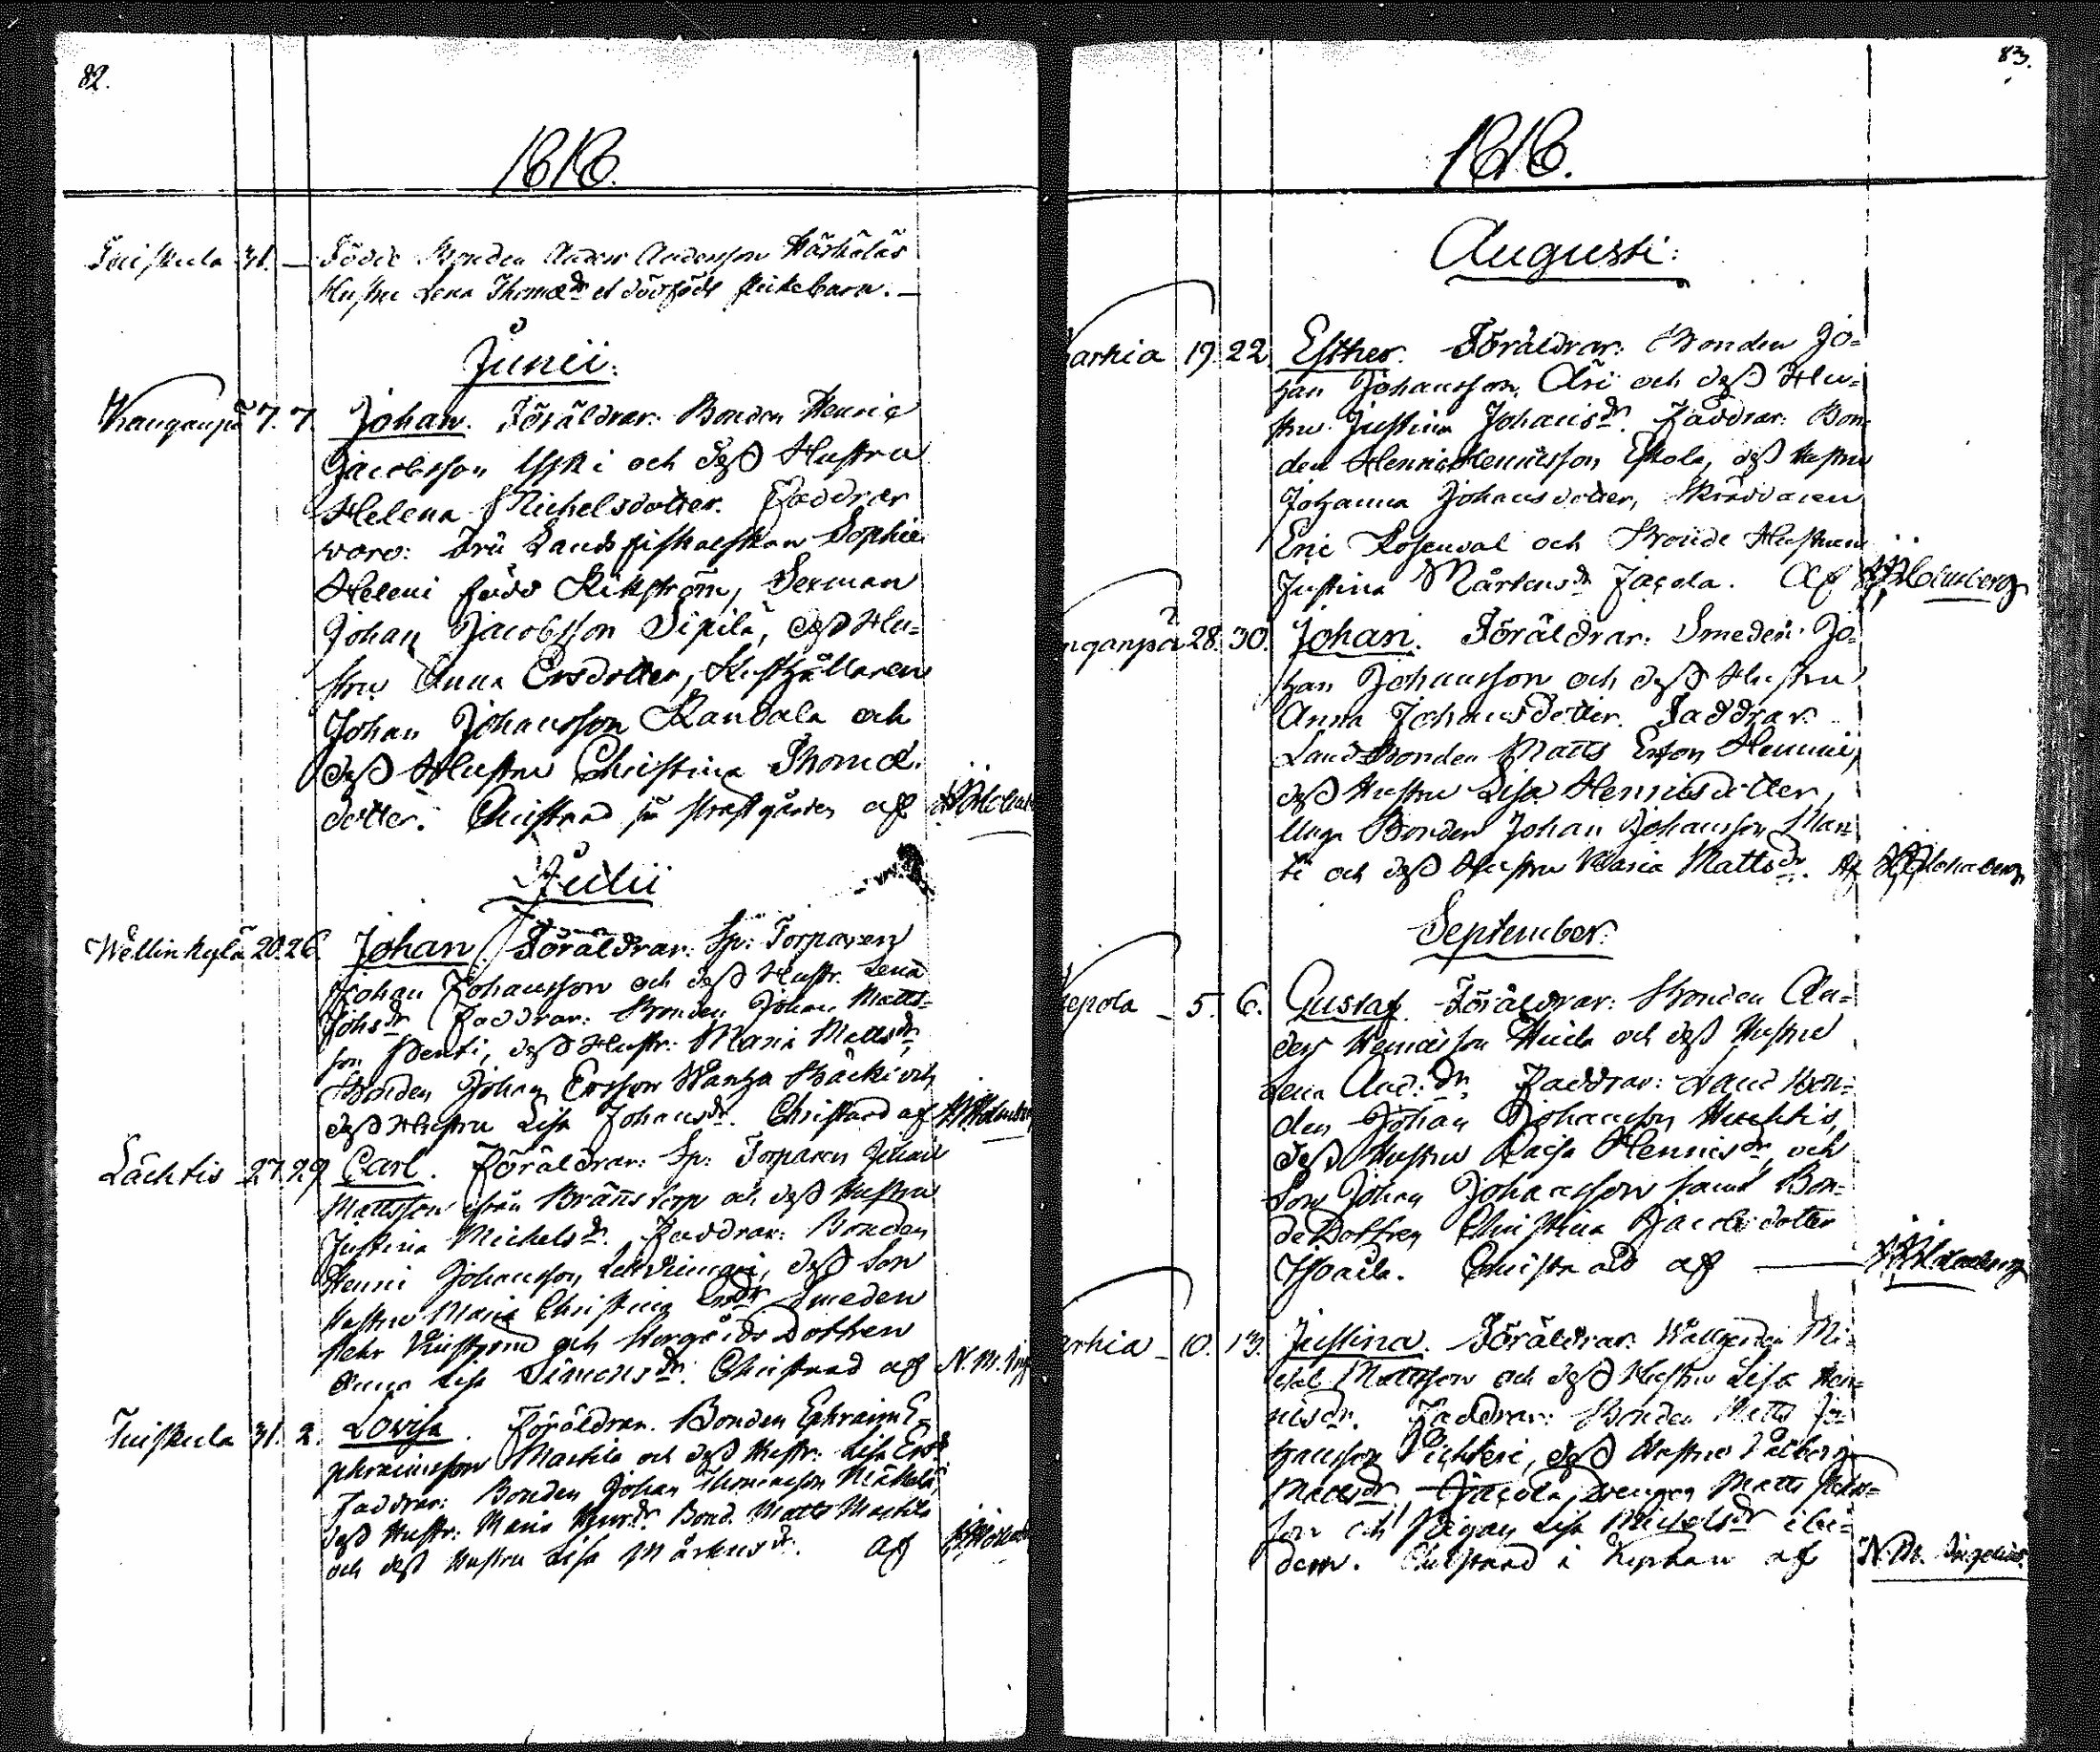 82.
1816.
Tuiskula 31. — Födde Bonden Anders Andersson Härkäläs
Hustru Lena Thomædr et dödfödt flickebarn. —
Junii.
Kanganpä 7. 7. Johan. Föräldrar: Bonden Henric
Jacobsson Yski och dess Hustru
Helena Michelsdotter. Faddrar
woro: Fru Landsfiskalskan Sophia
Heleni född Kihlström, Sexman
Johan Jacobsson Sipilä, dess Hu-
stru Anna Ersdotter, Rusthållaren
Johan Johansson Kandola och
dess Hustru Christina Thomæ
dotter. Christnad på Prestgården af
Julii
Wällinkylä 20. 26. Johan. Föräldrar: Sp: Torparen
Johan Johansson och dess Hustr. Lena
Johsdr Faddrar: Bonden Johan Matts-
son Pentti, dess Hustr: Maria Mattsdr,
Bonden Johan Ersson Wanha Bäcki och
dess Hustru Lisa Johansdr. Christnad af
Lächtis 27. 29 Carl. Föräldrar: Sp: Torparen Johan
Mattsson ifrån Brännstorp och dess Hustru
Justina Michelsdr. Faddrar: Bonden
Henric Johansson dess Son
Hustru Maria Christina Ersdr Smeden
och Storgårds Dottren
Anna Lisa Simonsdr. Christnad af N. M.
Tuiskula 31. 2. Lovisa. Föräldrar. Bonden Ephraim E-
phraimsson Mattila och dess Hustr: Lisa Ersdr
Faddrar: Bonden Johan Thomasson Härkälä,
dess Hustr: Maria Bond. Matts Mattila
och dess Hustru Lisa Mårtensdr. af
83.
1816.
Augusti:
arkia 19. 22 Esther. Föräldrar: Bonden Jo-
han Johansson Äri och dess Hu-
stru Justina Johansdr. Faddrar: Bon-
den Henric Henricsson Eskola, dess Hustru
Johanna Johansdotter, Skräddaren
Eric Rosendal och Bonde Hustrun
Justina Mårtensdr Jacola. Af Holmberg
nganpä 28. 30. Johan. Föräldrar: Smeden Jo-
han Johansson och dess Hustru
Anna Johansdotter. Faddrar:
Landbonden Matts Erson Hemmi,
dess Hustru Lisa Henricsdotter,
Unga Bonden Johan Johansson Mar-
ti och dess Hustru Maria Mattsdr. Af Holmberg
September.
epola — 5. 6. Gustaf. Föräldrar: Bonden An-
ders Henricsson och dess Hustru
Lena And:dr. Faddrar: Land Bon-
den Johan Johansson
dess Hustru Caisa Henricsdr och
Son Johan Johansson samt Bon-
de Dottren Christina Jacobsdotter
Christnad af — Holmberg
arkia — 10. 13. Justina. Föräldrar: Mi-
chel Mattsson och dess Hustru Lisa Hen-
ricsdr. Faddrar: Bonden Matts Jo-
hansson dess Hustru Walborg
Mattsdr Jacola, Drengen Matts
son och Pigan Lisa Michelsdr ibi-
dem. Christnad i Kyrkan af N. M.